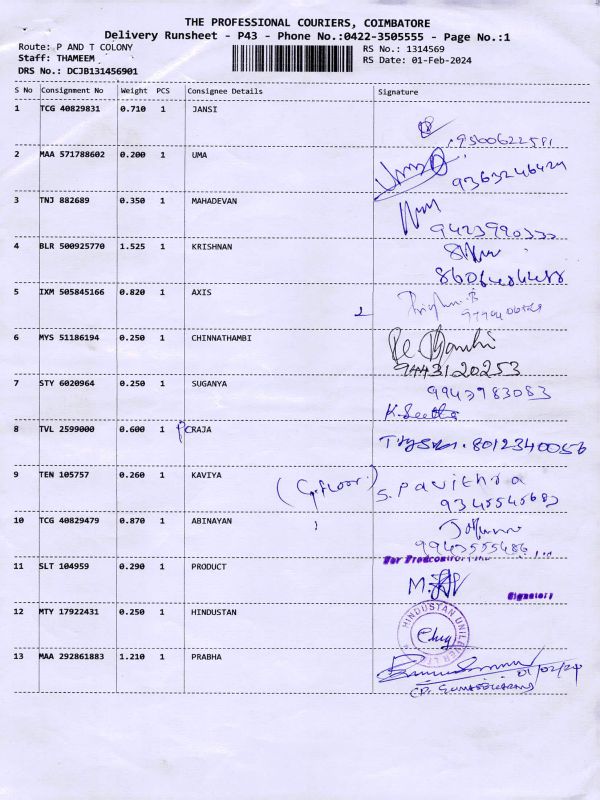 THE PROFESSIONAL COURIERS, COIMBATORE
Delivery Runsheet - P43 - Phone No.:0422-3505555 - Page No.:1
Route: P AND T COLONY RS No.: 1314569
Staff: THAMEEM RS Date: 01-Feb-2024
DRS No.: DCJB131456901
S No Consignment No Weight PCS Consignee Details Signature
1 TCG 40829831 0.710 1 JANSI
9500622581
2 MAA 571788602 0.200 1 UMA
9363246424
3 TNJ 882689 0.350 1 MAHADEVAN
4 BLR 500925770 1.525 1 KRISHNAN
5 IXM 505845166 0.820 1 AXIS
6 MYS 51186194 0.250 1 CHINNATHAMBI
9443120253
7 STY 6020964 0.250 1 SUGANYA
9943983083
K. Seetha
8 TVL 2599000 0.600 1 PCRAJA
8012340056
9 TEN 105757 0.260 1 KAVIYA
(G.floor.) S. pavithra
9345545683
10 TCG 40829479 0.870 1 ABINAYAN
9943555486
11 SLT 104959 0.290 1 PRODUCT
For
M.
Signatory
12 MTY 17922431 0.250 1 HINDUSTAN
HINDUSTAN UNILEVER LTD
13 MAA 292861883 1.210 1 PRABHA
01/02/24